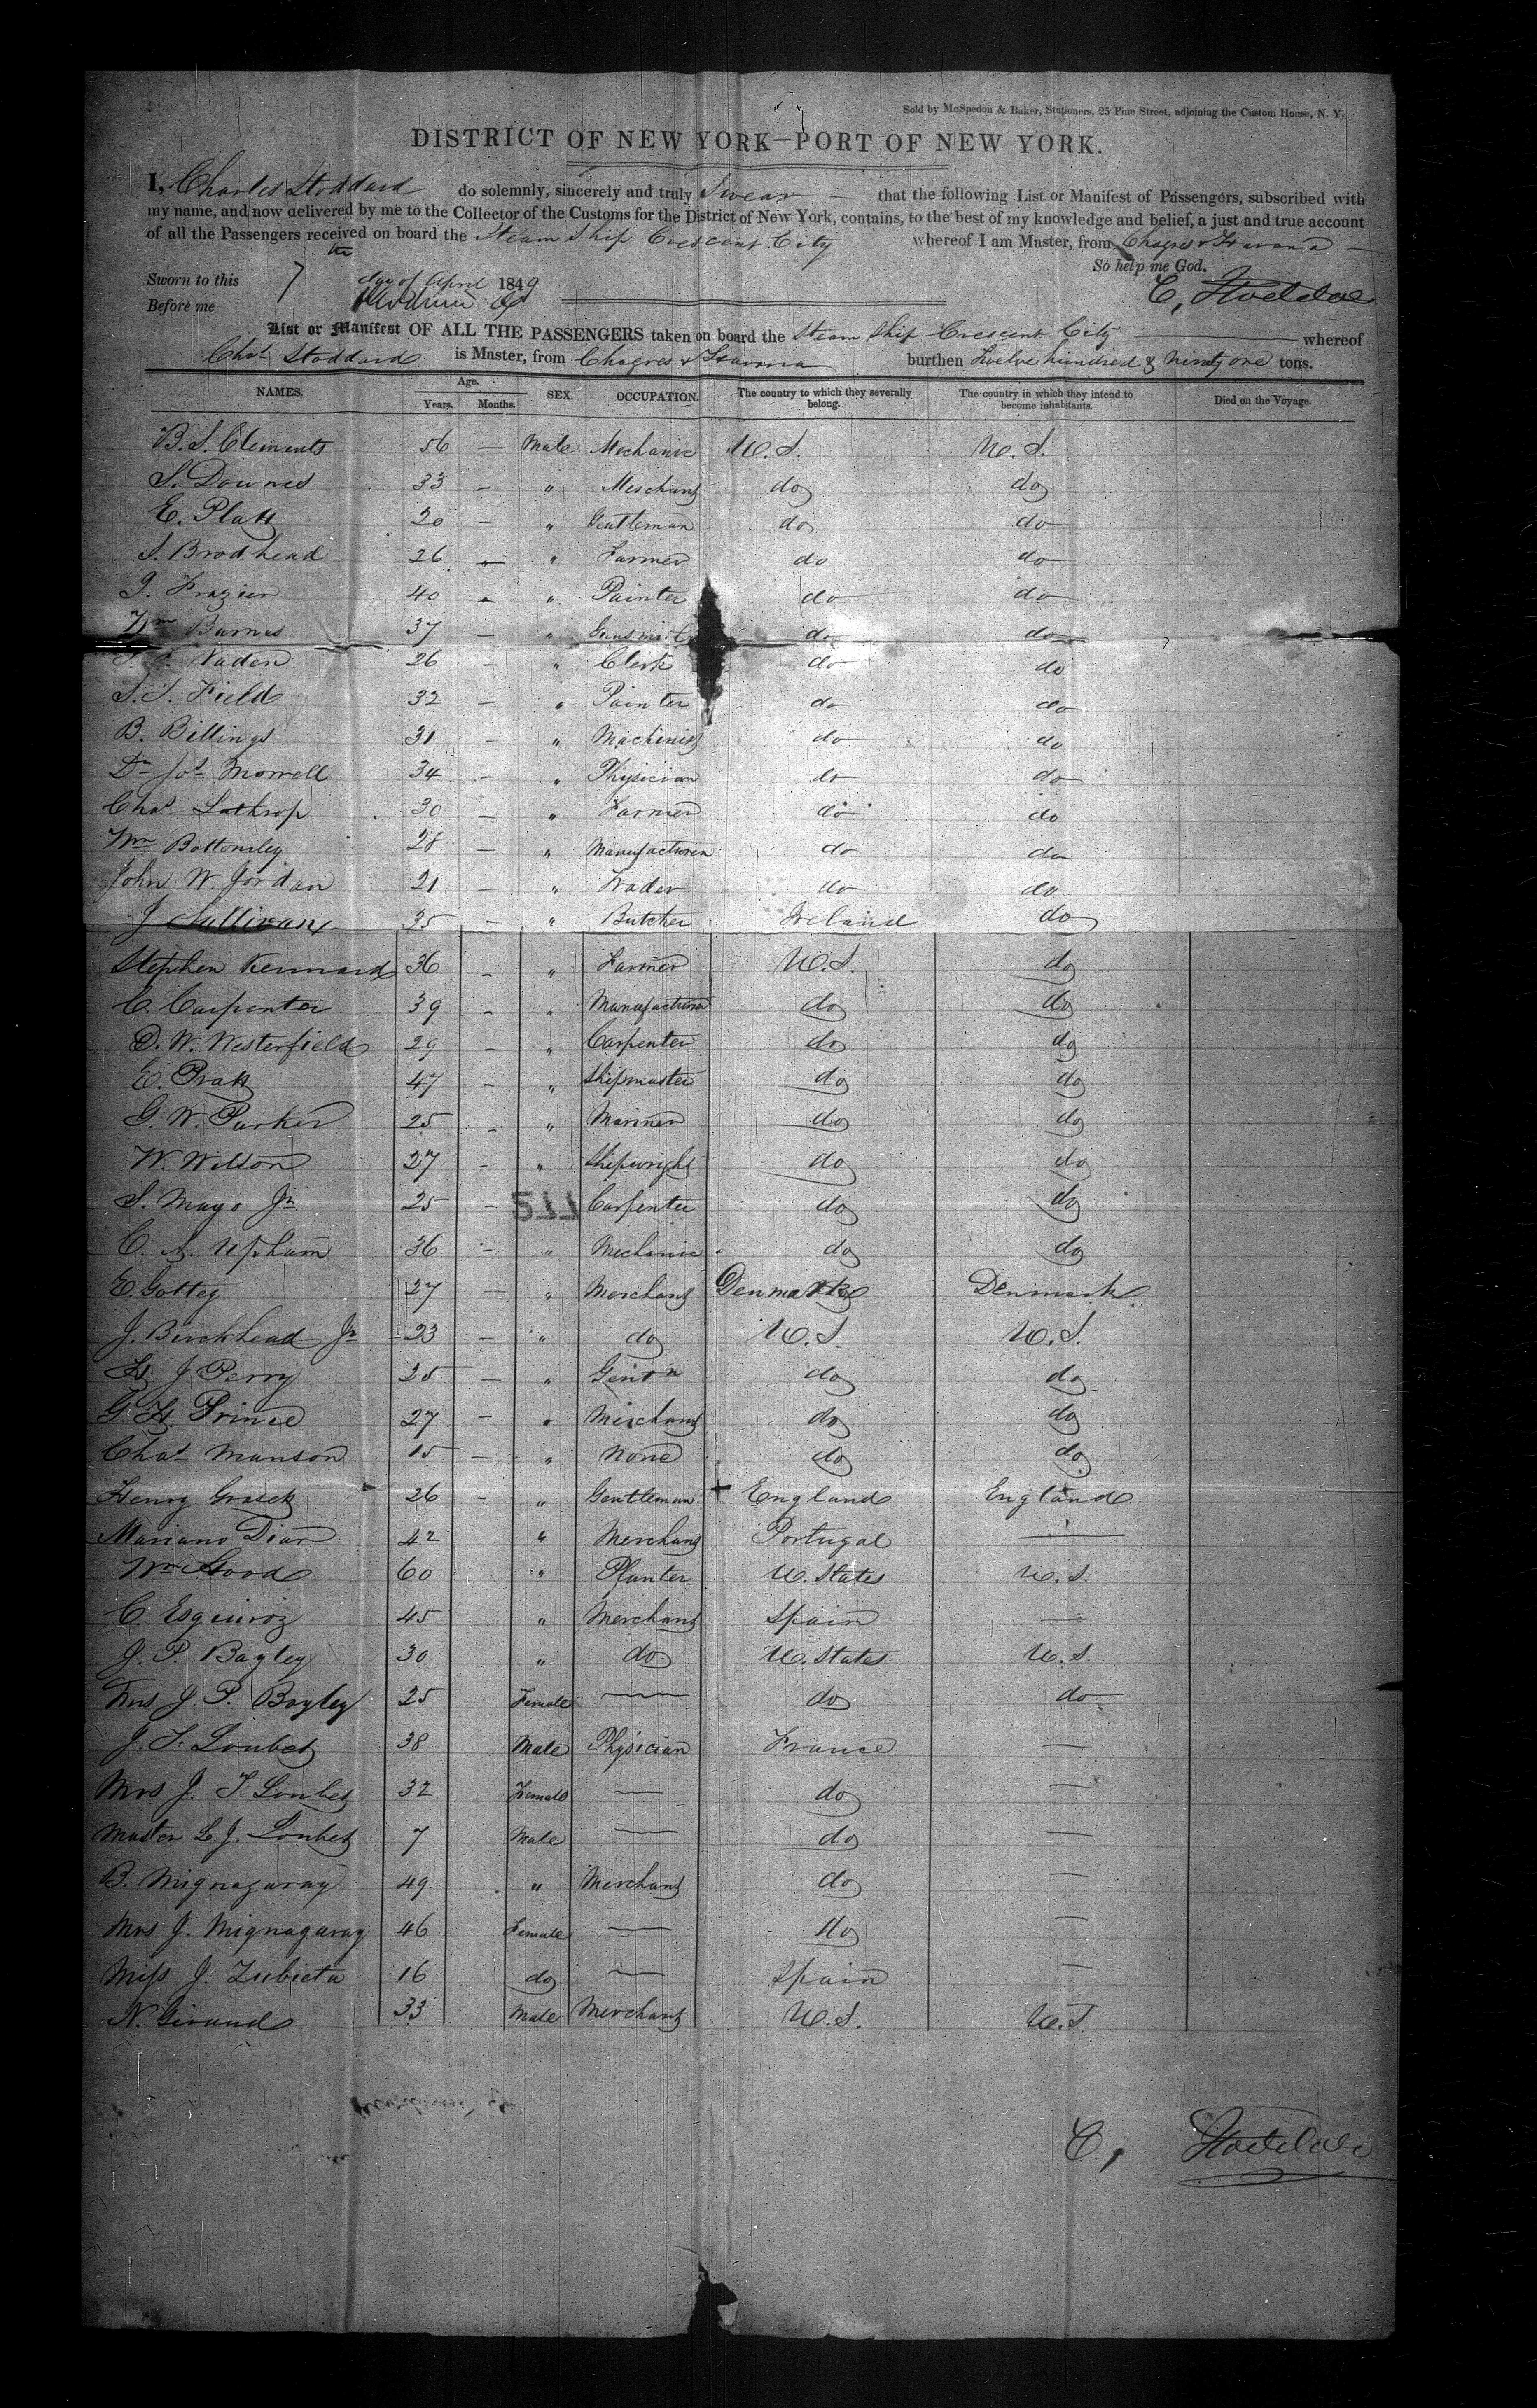 Sold by McSpedon & Baker, Stationers, 25 Pine Street, adjoining the Custom House, N. Y.
DISTRICT OF NEW YORK—PORT OF NEW YORK.
I, Charles Stoddard do solemnly, sincerely and truly Swear — that the following List or Manifest of Passengers, subscribed with
my name, and now delivered by me to the Collector of the Customs for the District of New York, contains, to the best of my knowledge and belief, a just and true account
of all the Passengers received on board the Steam Ship Crescent City whereof I am Master, from Chagres & Havana —
So help me God.
Sworn to this 7 the day of April 1849
Before me
C, Stoddard
List or Manifest OF ALL THE PASSENGERS taken on board the Steam Ship Crescent City whereof
Chas Stoddard is Master, from Chagres & Havana burthen Twelve hundred & Ninety one tons.
NAMES. Age. Years. Months. SEX. OCCUPATION. The country to which they severally belong. The country in which they intend to become inhabitants. Died on the Voyage.
B. S. Clements 56 — Male Mechanic U. S. U. S.
S. Downes 33 — " Merchant do do
E. Platt 20 — " Gentleman do do
S. Brodhead 26 — " Farmer do do
J. Frazier 40 — " Painter do do
Wm Barnes 37 — " Gunsmith do do
Naden 26 — " Clerk do do
S. S. Field 32 — " Painter do do
B. Billings 31 — " Machinist do do
Dr Jos Morrell 34 — " Physician do do
Chas Lathrop 30 — " Farmer do do
Wm Bottomley 28 — " Manufacturer do do
John W. Jordan 21 — " Trader do do
J Sullivan 35 — " Butcher Ireland do
Stephen Kennard 36 — " Farmer U. S. do
C. Carpenter 39 — " Manufacturer do do
D. W. Westerfield 29 — " Carpenter do do
E. Pratt 47 — " Shipmaster do do
G. W. Parker 25 — " Mariner do do
W. Wilson 27 — " Shipwright do do
S. Mayo Jr 25 — Carpenter do do
C. A. Upham 36 — " Mechanic do do
E. Gottey 27 — " Merchant Denmark Denmark
J. Birckhead Jr 23 — " do U. S. U. S.
H J Perry 25 — " Gentn do do
G. H. Prince 27 — " Merchant do do
Chas Manson 15 — " None do do
Henry Grasett 26 — " Gentleman England England
Mariano Diar 42 " Merchant Portugal —
Wm Good 60 " Planter U. States U. S.
C. Esquiroz 45 " Merchant Spain —
J. P. Bagley 30 " do U. States U. S.
Mrs J. P. Bagley 25 Female — do do
J. T. Loubet 38 Male Physician France —
Mrs J. T Loubet 32 Female — do —
Master L. J. Loubet 7 Male — do —
B. Mignagaray 49 " Merchant do —
Mrs J. Mignagaray 46 Female — do —
Miss J. Zubieta 16 do — Spain —
N. Giraud 33 Male Merchant U. S. U. S.
C, Stoddard